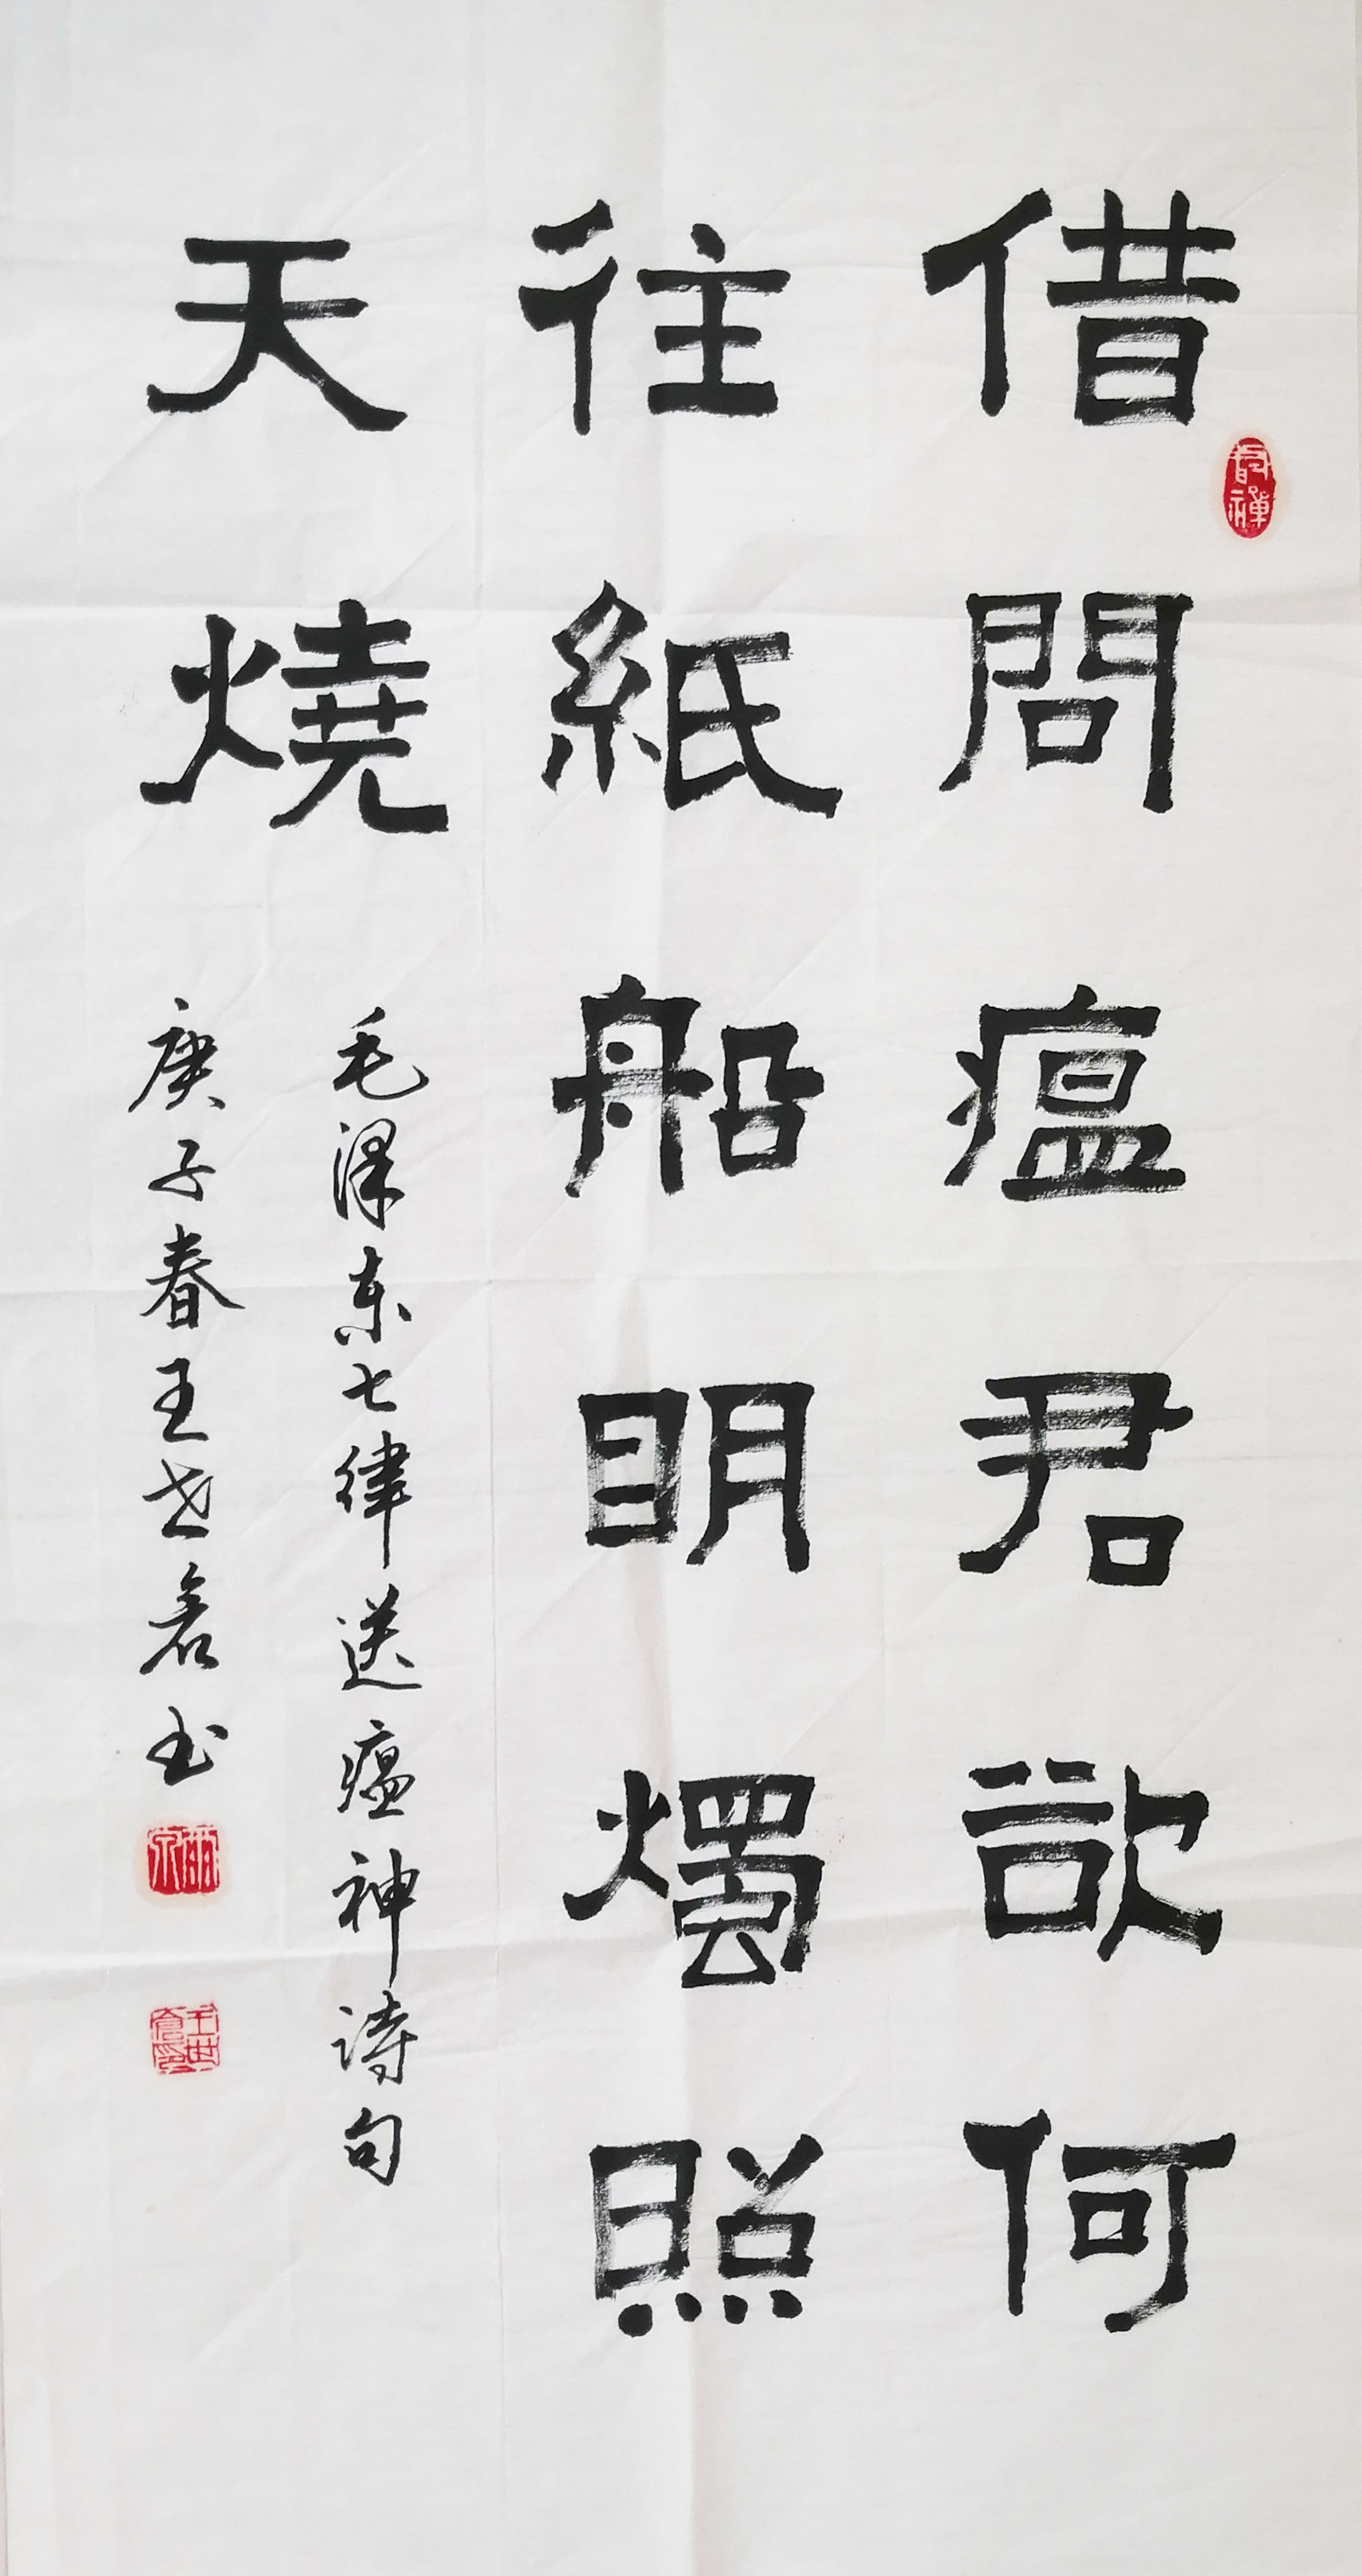 借問瘟君欲何
往紙船明燭照
天燒
毛泽东七律送瘟神诗句
庚子春王世
书